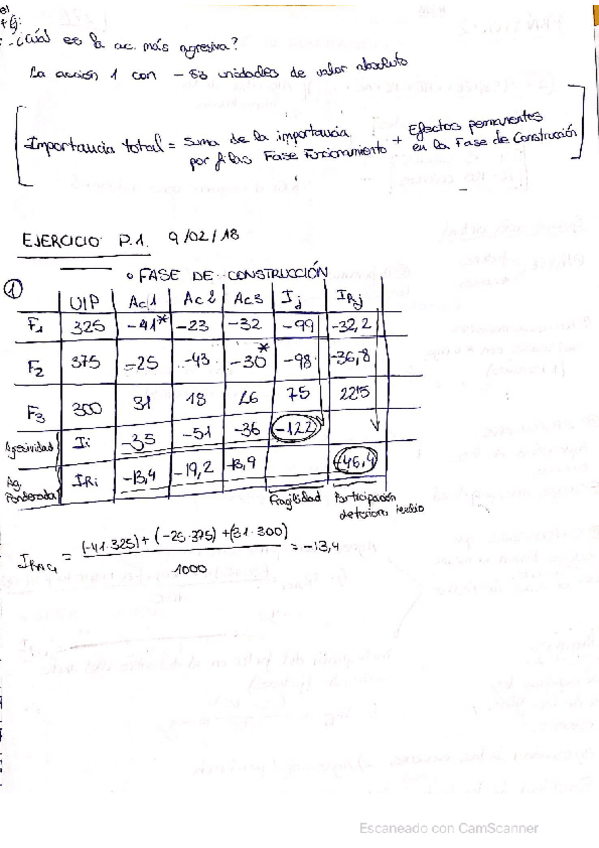 ¿Cuál es la ac. más agresiva?
La acción 1 con -53 unidades de valor absoluto
Importancia total = suma de la importancia por filas Fase Funcionamiento + Efectos permanentes en la Fase de Construcción
EJERCICIO P.1. 9/02/18
① • FASE DE CONSTRUCCIÓN
UIP Ac1 Ac2 Ac3 Ij IRj
F1 325 -41* -23 -32 -99 -32,2
F2 375 -25 -43 -30* -98 -36,8
F3 300 31 18 26 75 22'5
Agresividad Ii -35 -51 -36 -122
Ag. Ponderada IRi -13,4 -19,2 -13,9 -46,4
Fragilidad Participación deterioro medio
IRAC1 = (-41·325)+(-25·375)+(31·300) / 1000 = -13,4
Escaneado con CamScanner